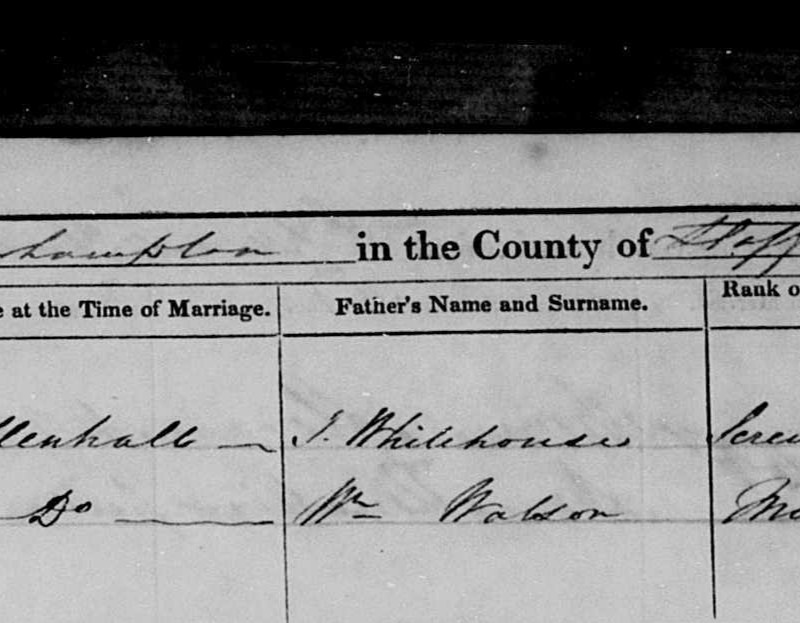 hampton in the County of Staff
e at the Time of Marriage. Father's Name and Surname. Rank o
llenhall — J. Whitehouse Screw
Do — Wm Watson Mo